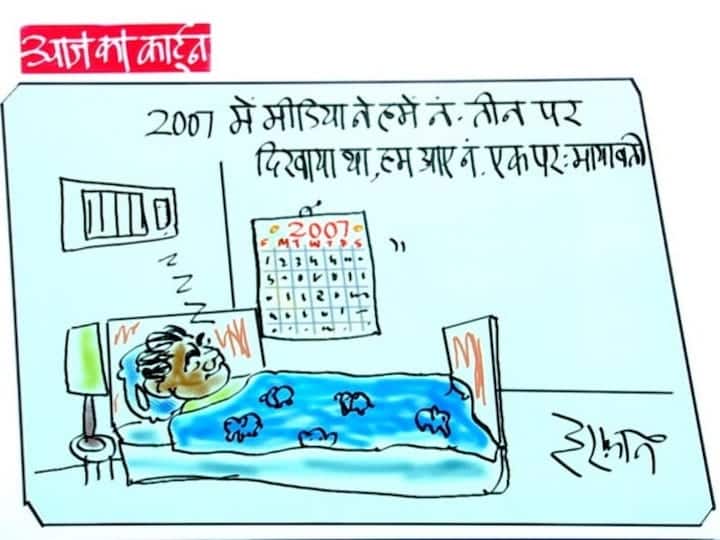 आज का कार्टून
2007 में मीडिया ने हमें नं. तीन पर
दिखाया था, हम आए नं. एक पर: मायावती
z
z
z
2007
इरफ़ान